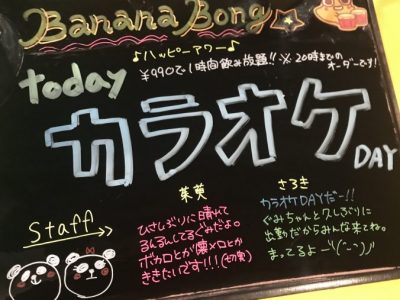 Banana Bong
♪ハッピーアワー♪
¥990で1時間飲み放題!!※20時までの
オーダーです!
today
カラオケ
DAY
Staff
茱萸
ひさしぶりに晴れて
るんるんしてるぐみだよ。
ボカロとか懐メロとか
ききたいです!!!(切実)
さろき
カラオケDAYだー!!
ぐみちゃんと久しぶりに
出勤だからみんな来てね。
まってるよー